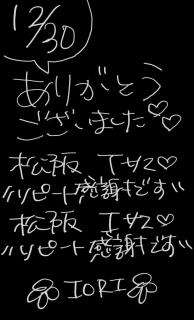 12/30
ありがとう
ございました♡♡
松阪 Tサマ♡
リピート感謝です"
松阪 Tサマ♡
リピート感謝です"
IORI